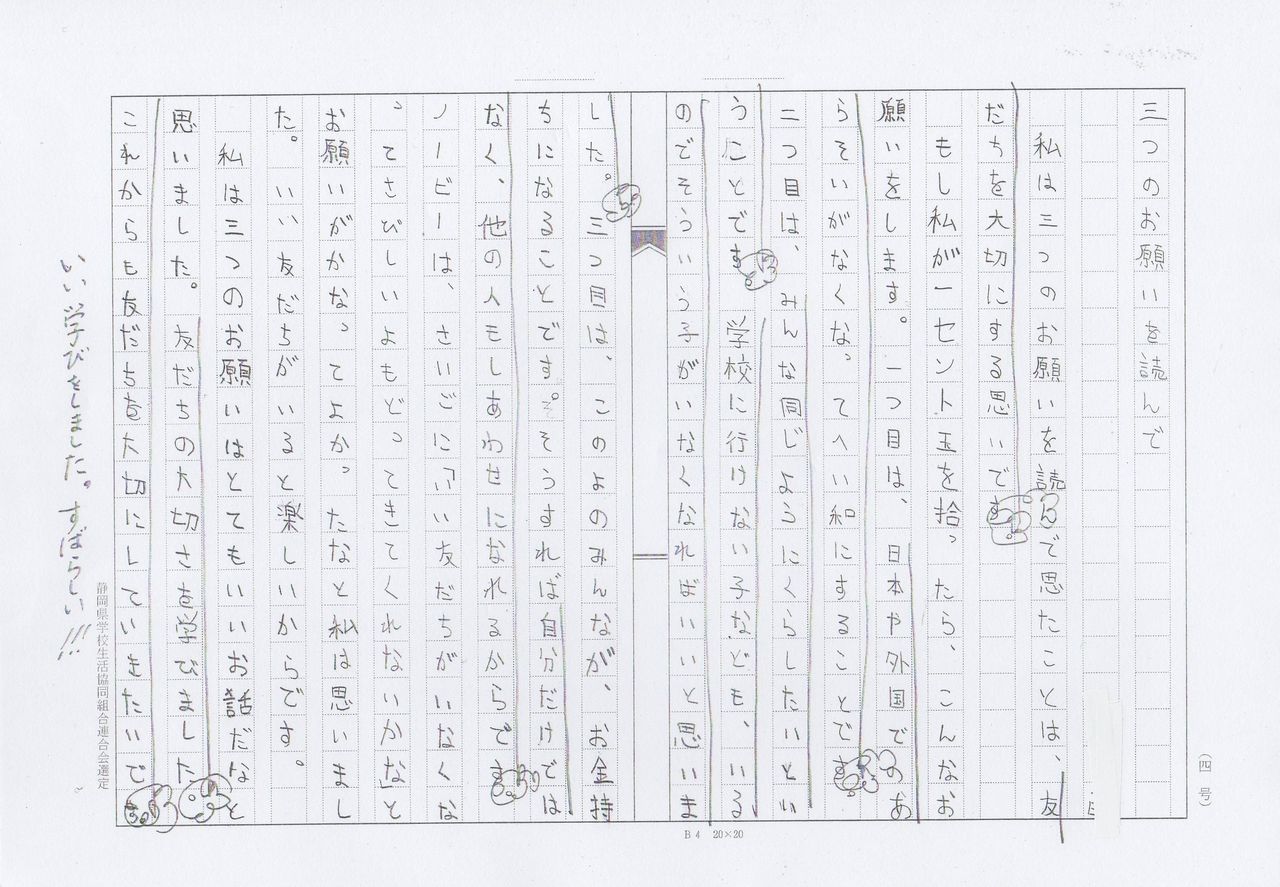 三つのお願いを読んで
私は三つのお願いを読んで思たことは、友
だちを大切にする思いです。
もし私が一セント玉を拾ったら、こんなお
願いをします。一つ目は、日本や外国でのあ
らそいがなくなってへい和にすることです。
二つ目は、みんな同じようにくらしたいとい
うことです。学校に行けない子なども、いる
のでそういう子がいなくなればいいと思いま
した。三つ目は、このよのみんなが、お金持
ちになることです。そうすれば自分だけでは
なく、他の人もしあわせになれるからです。
ノービーは、さいごに「いい友だちがいなくな
ってさびしいよもどってきてくれないかな」と
お願いがかなってよかったなと私は思いまし
た。いい友だちがいると楽しいからです。
私は三つのお願いはとてもいいお話だなと
思いました。友だちの大切さを学びました
これからも友だちを大切にしていきたいです。
いい学びをしました。すばらしい!!!
静岡県学校生活協同組合連合会選定
(四号)
B4 20×20